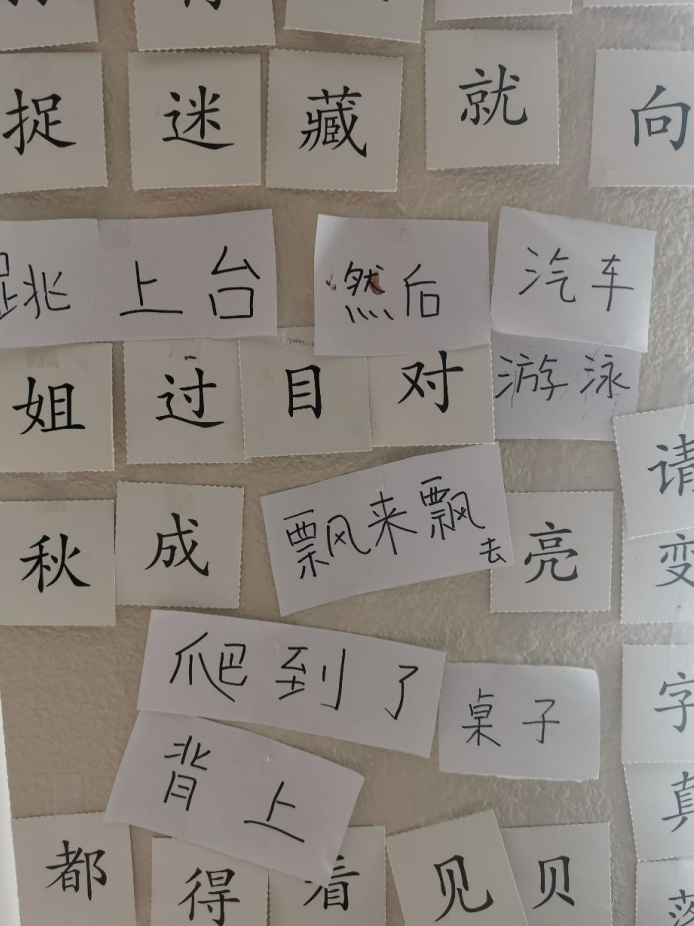 捉 迷 藏 就 向
跳 上 台 然后 汽车
姐 过 目 对 游泳
请
秋 成 飘来飘去 亮 变
爬到了 桌子 字
背上 真
都 得 着 见 贝 落